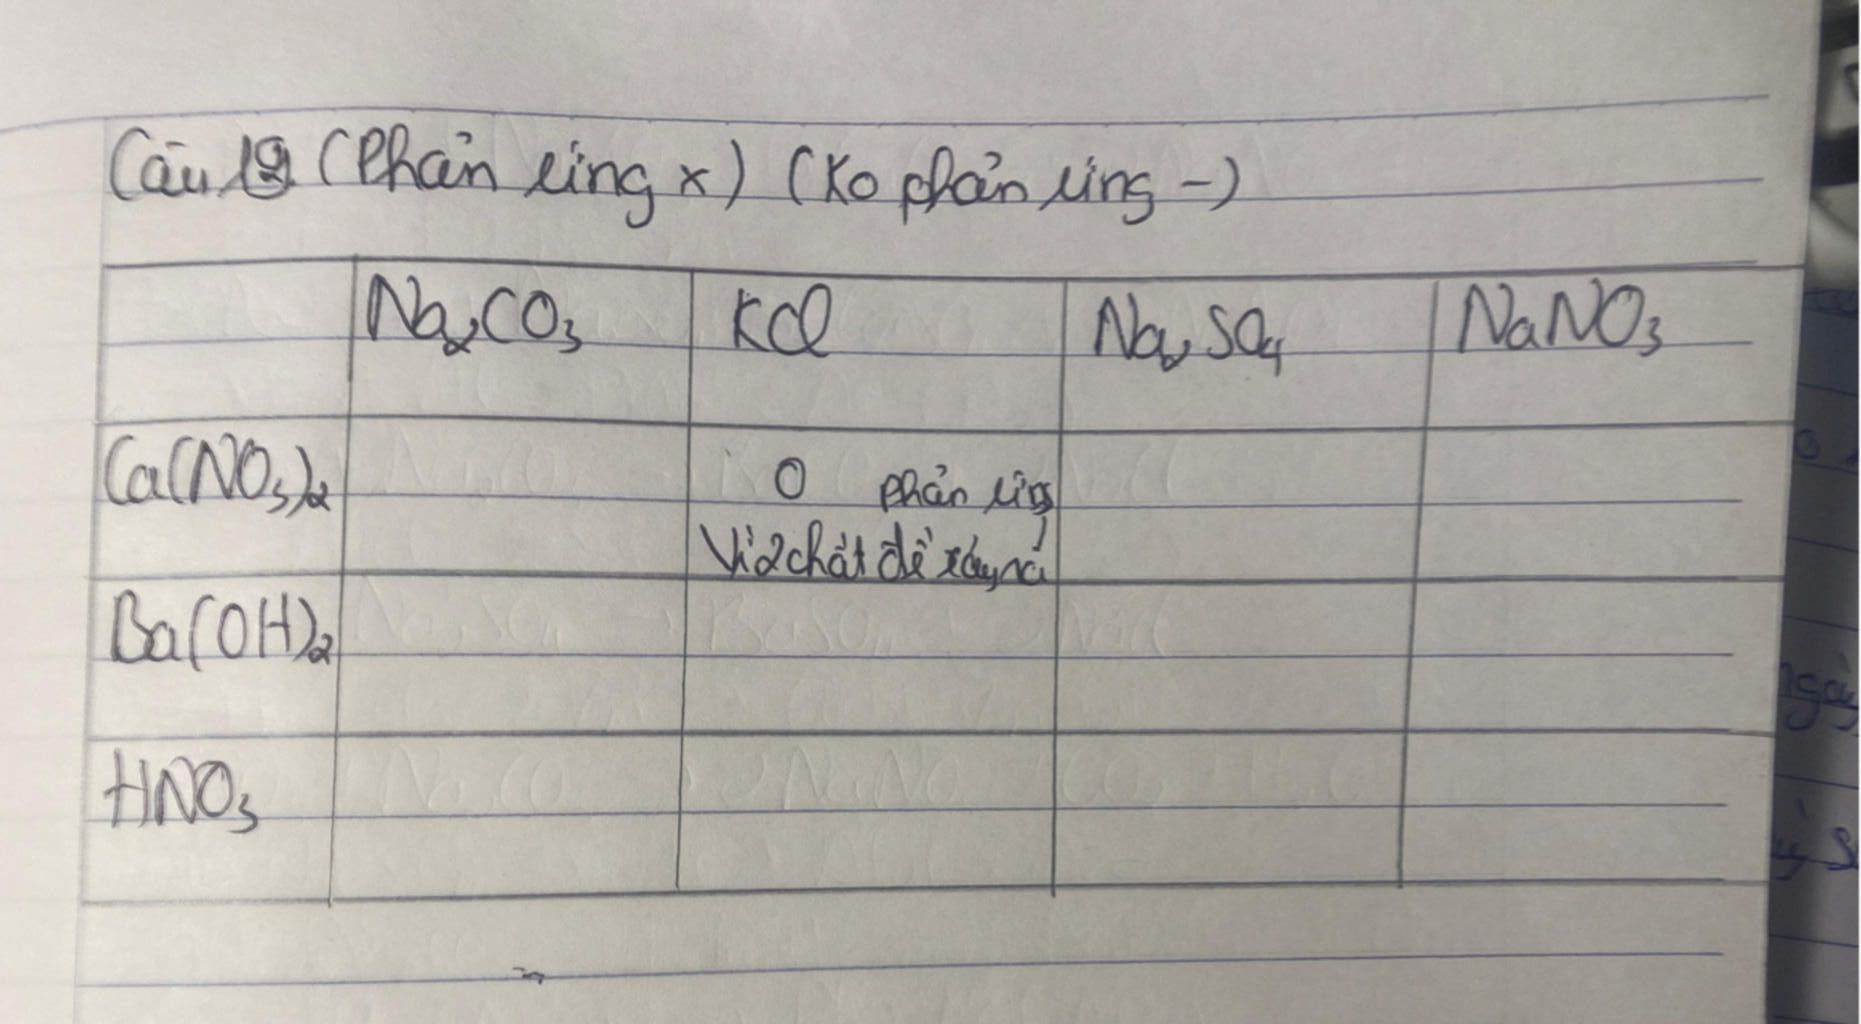 Câu 12 (Phản ứng x) (Ko phản ứng -)
Na₂CO₃ KCl Na₂SO₄ NaNO₃
Ca(NO₃)₂ O phản ứng
Vì 2 chất để xảy ra
Ba(OH)₂
HNO₃